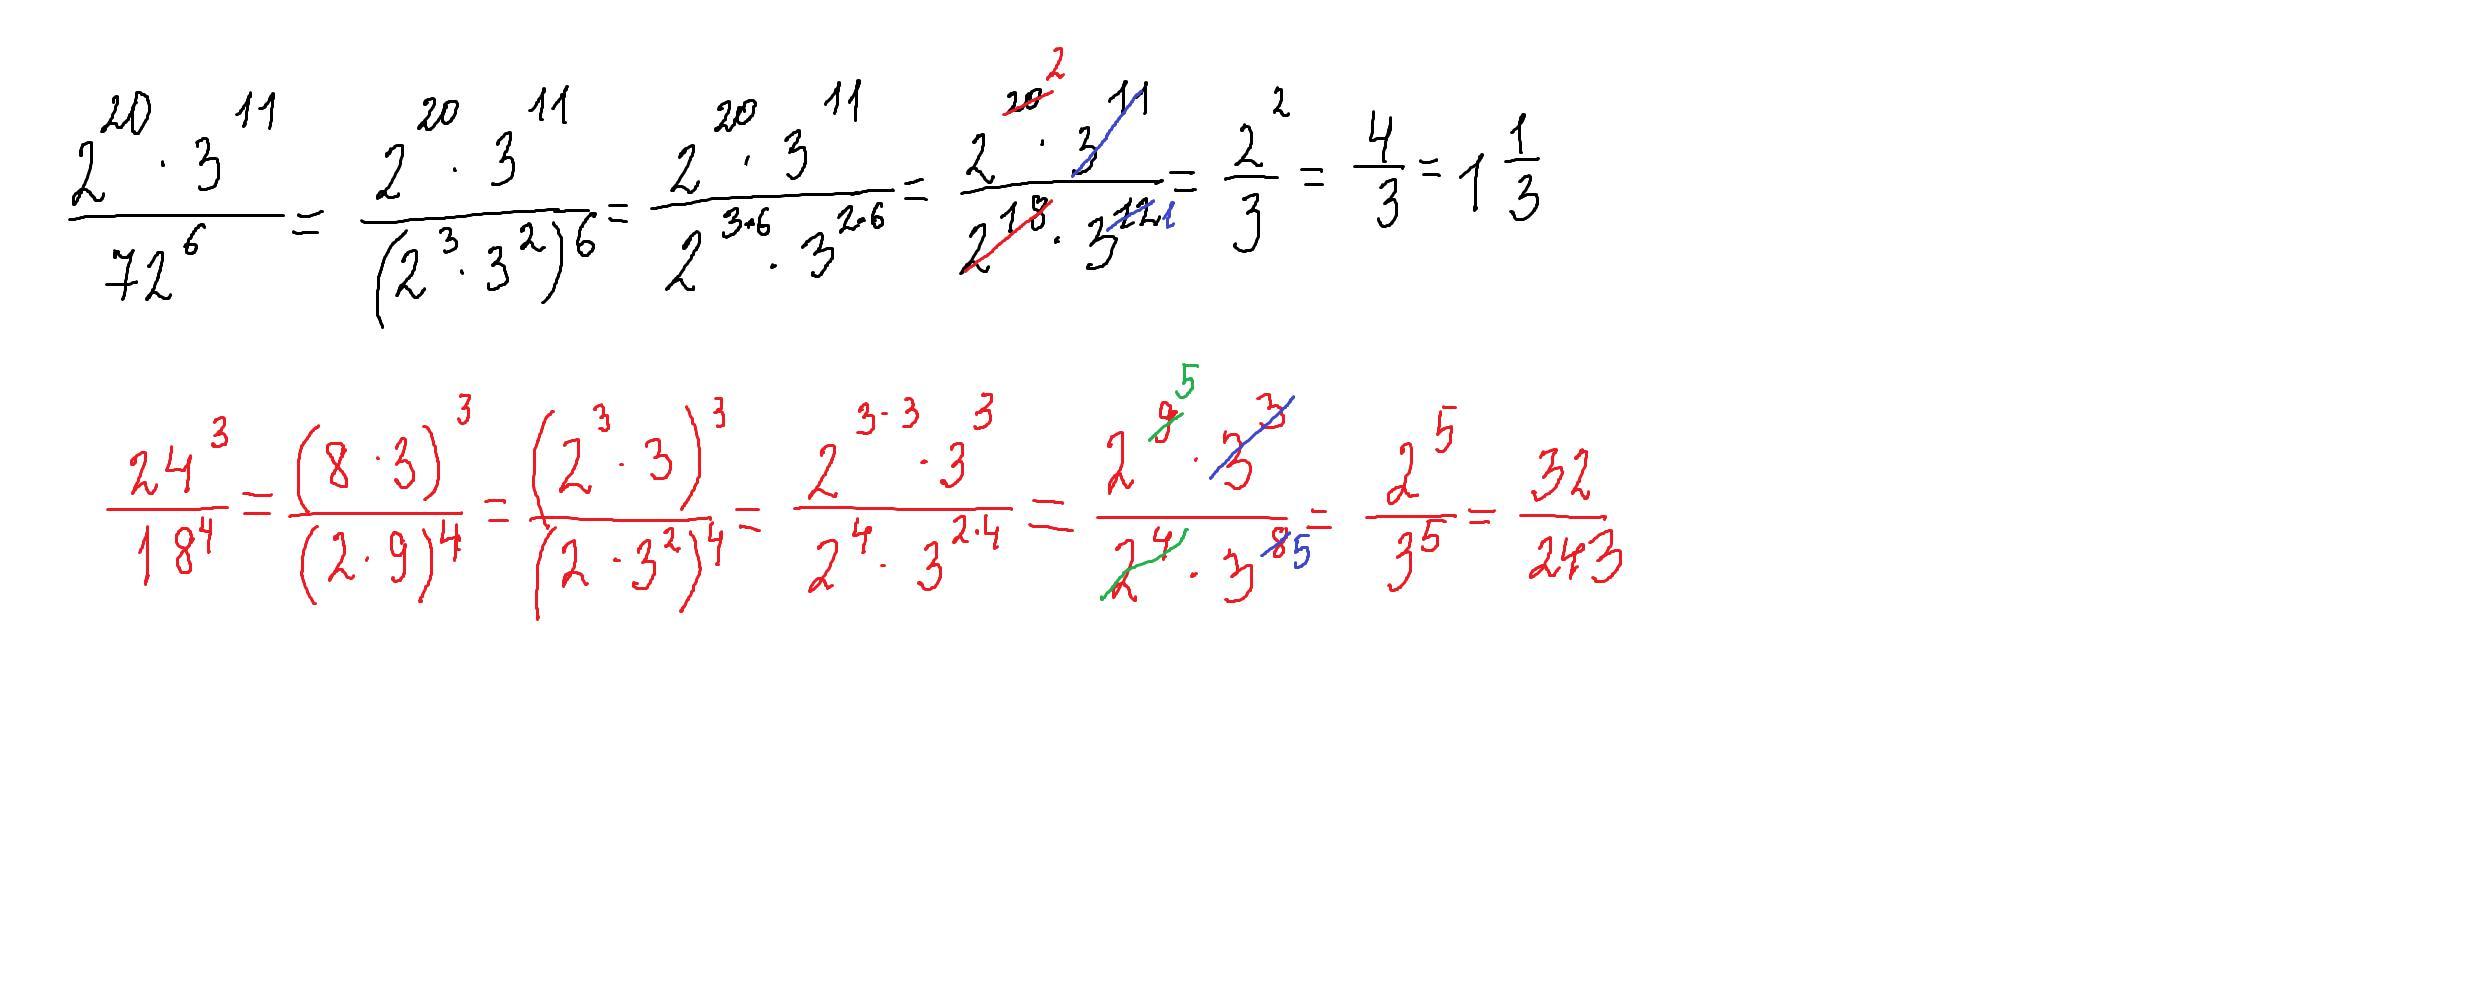 2^20 · 3^11 / 72^6 = 2^20 · 3^11 / (2^3 · 3^2)^6 = 2^20 · 3^11 / 2^3·6 · 3^2·6 = 2^20 2 · 3^11 / 2^18 · 3^12 1 = 2^2 / 3 = 4/3 = 1 1/3
24^3 / 18^4 = (8 · 3)^3 / (2 · 9)^4 = (2^3 · 3)^3 / (2 · 3^2)^4 = 2^3·3 · 3^3 / 2^4 · 3^2·4 = 2^9 5 · 3^3 / 2^4 · 3^8 5 = 2^5 / 3^5 = 32 / 243